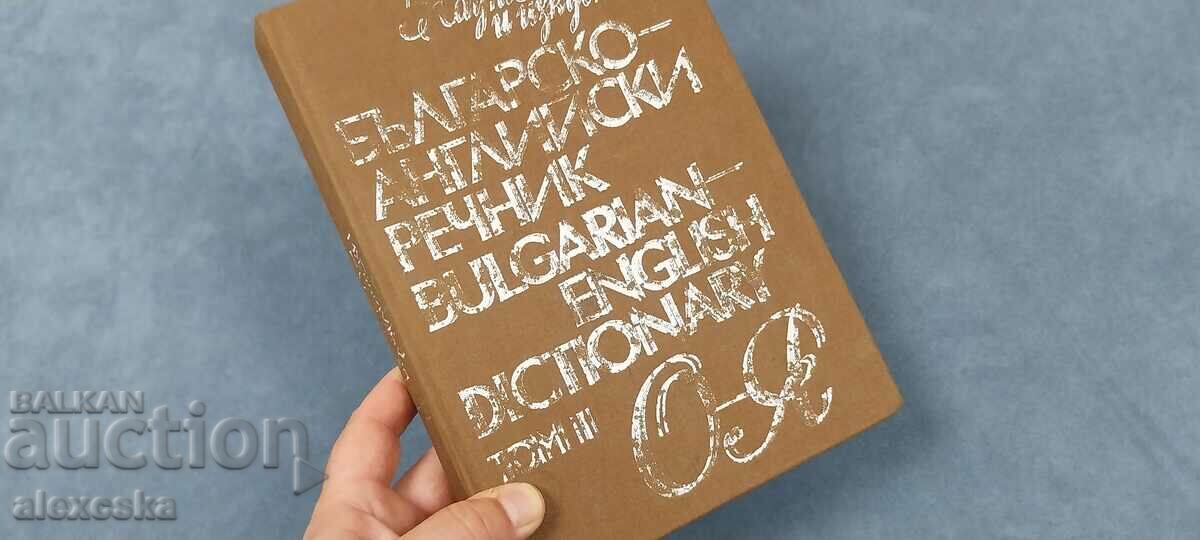 и изкуст
БЪЛГАРСКО-
АНГЛИЙСКИ
РЕЧНИК
BULGARIAN-
ENGLISH
DICTIONARY
ТОМ II
О-Я
BALKAN
auction
alexeska